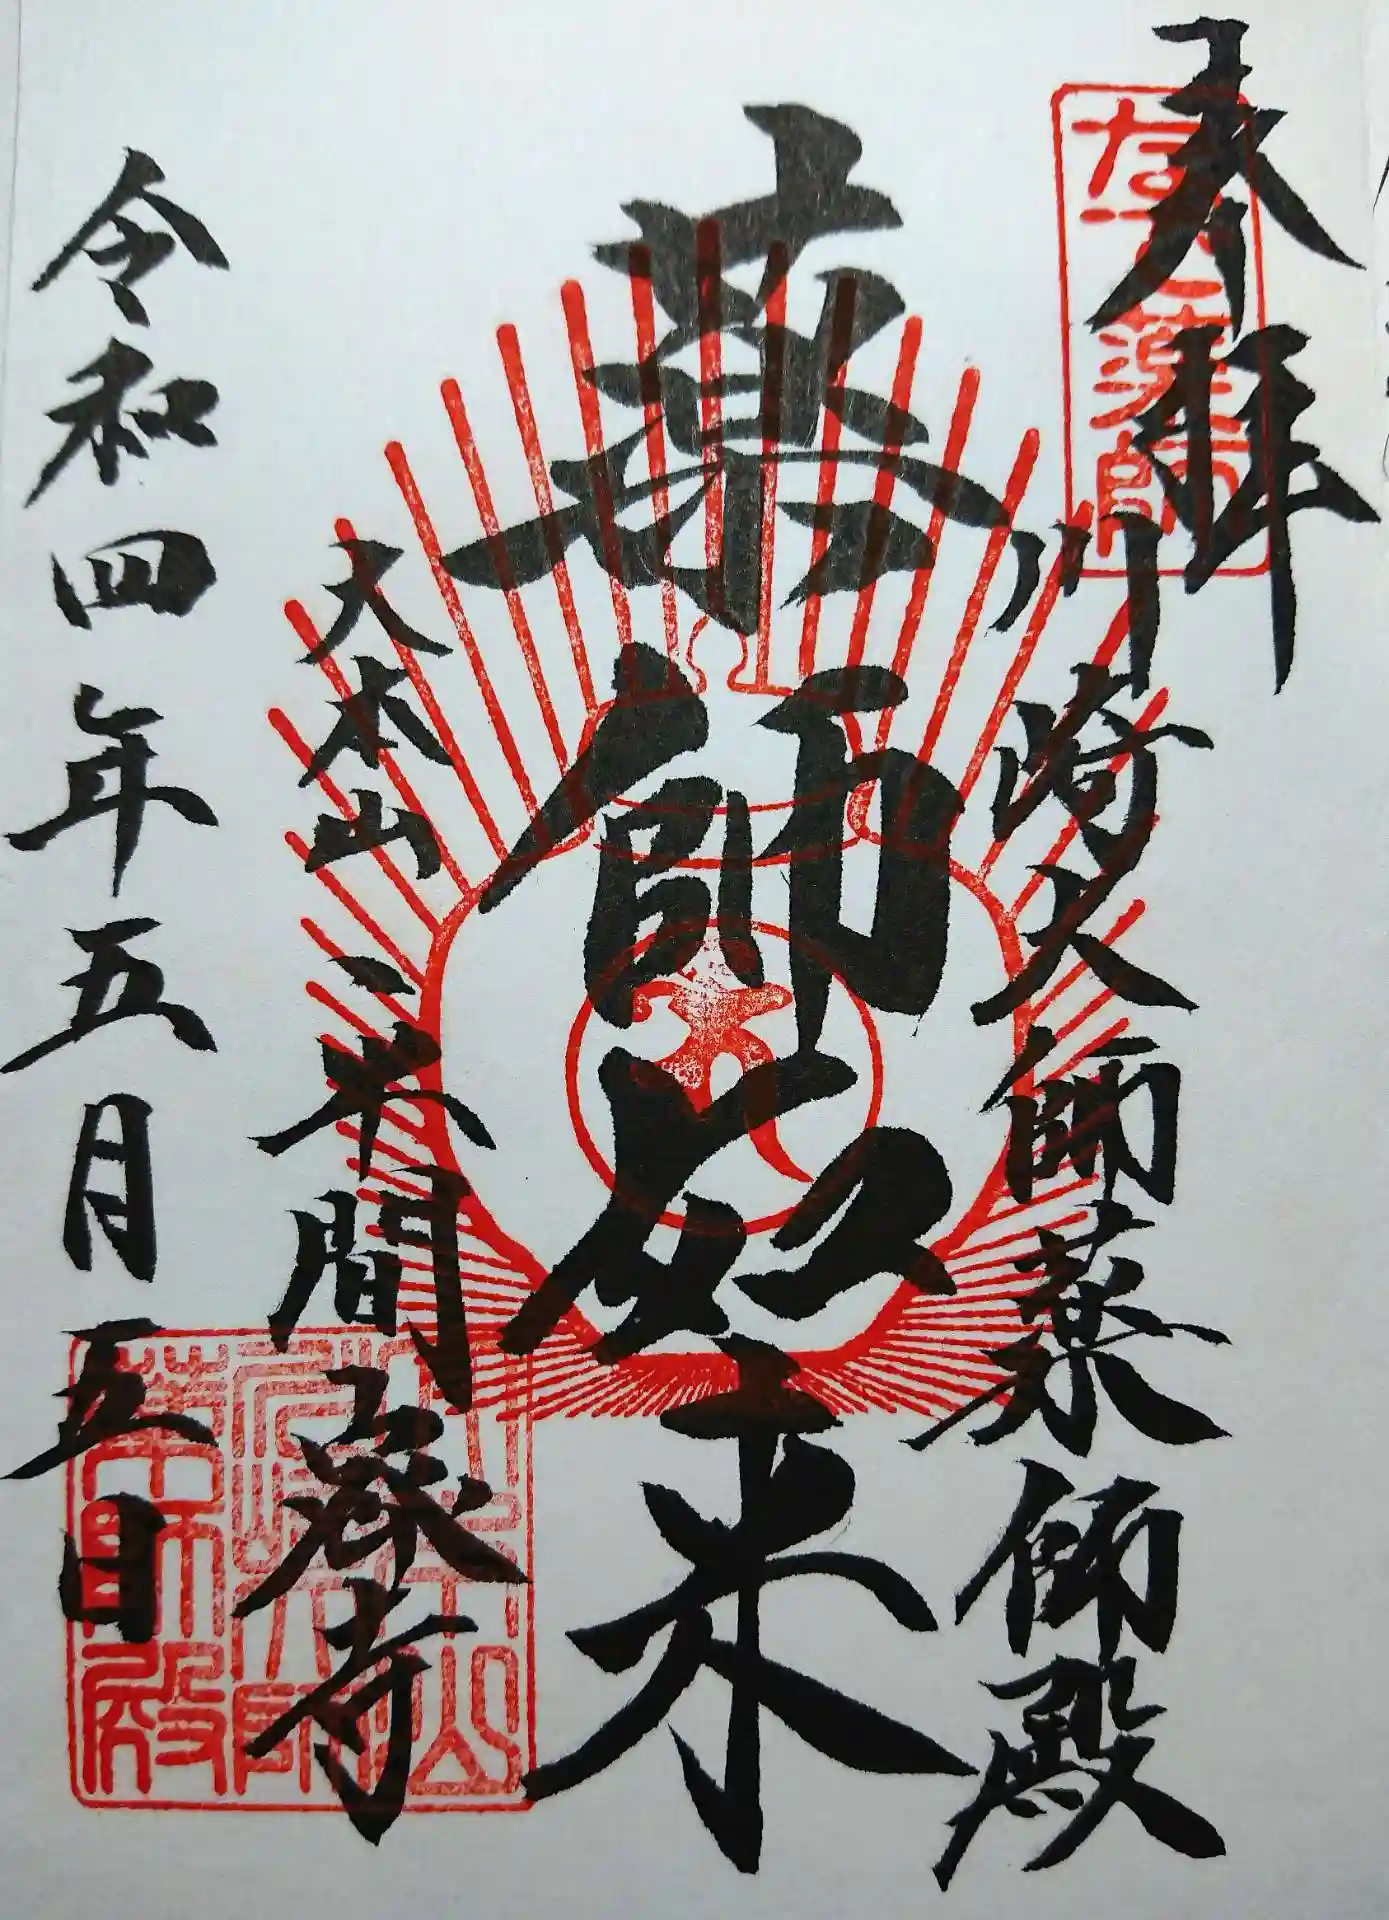 奉拝
なで薬師
川崎大師薬師殿
薬師如来
大本山
平間寺
令和四年五月五日